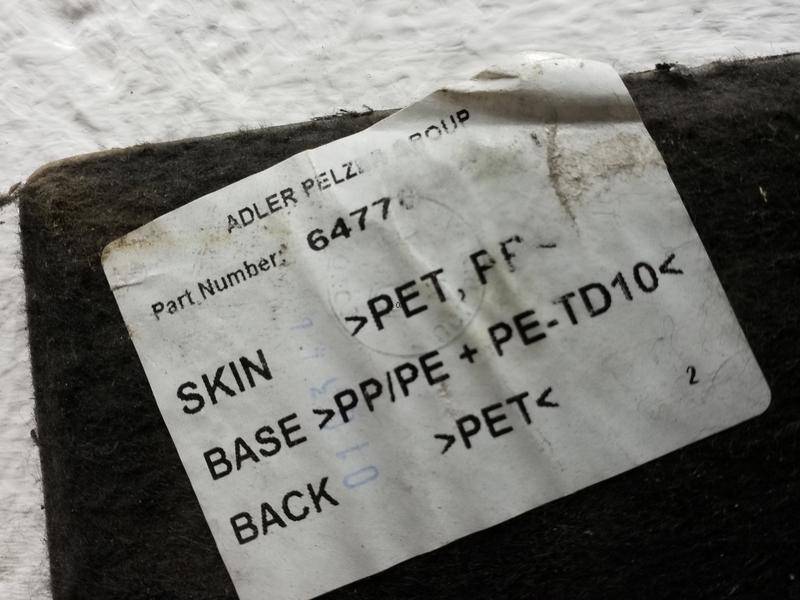 ADLER PELZER GROUP
Part Number:
SKIN >PET,
BASE >PP/PE + PE-TD10<
BACK >PET<
2